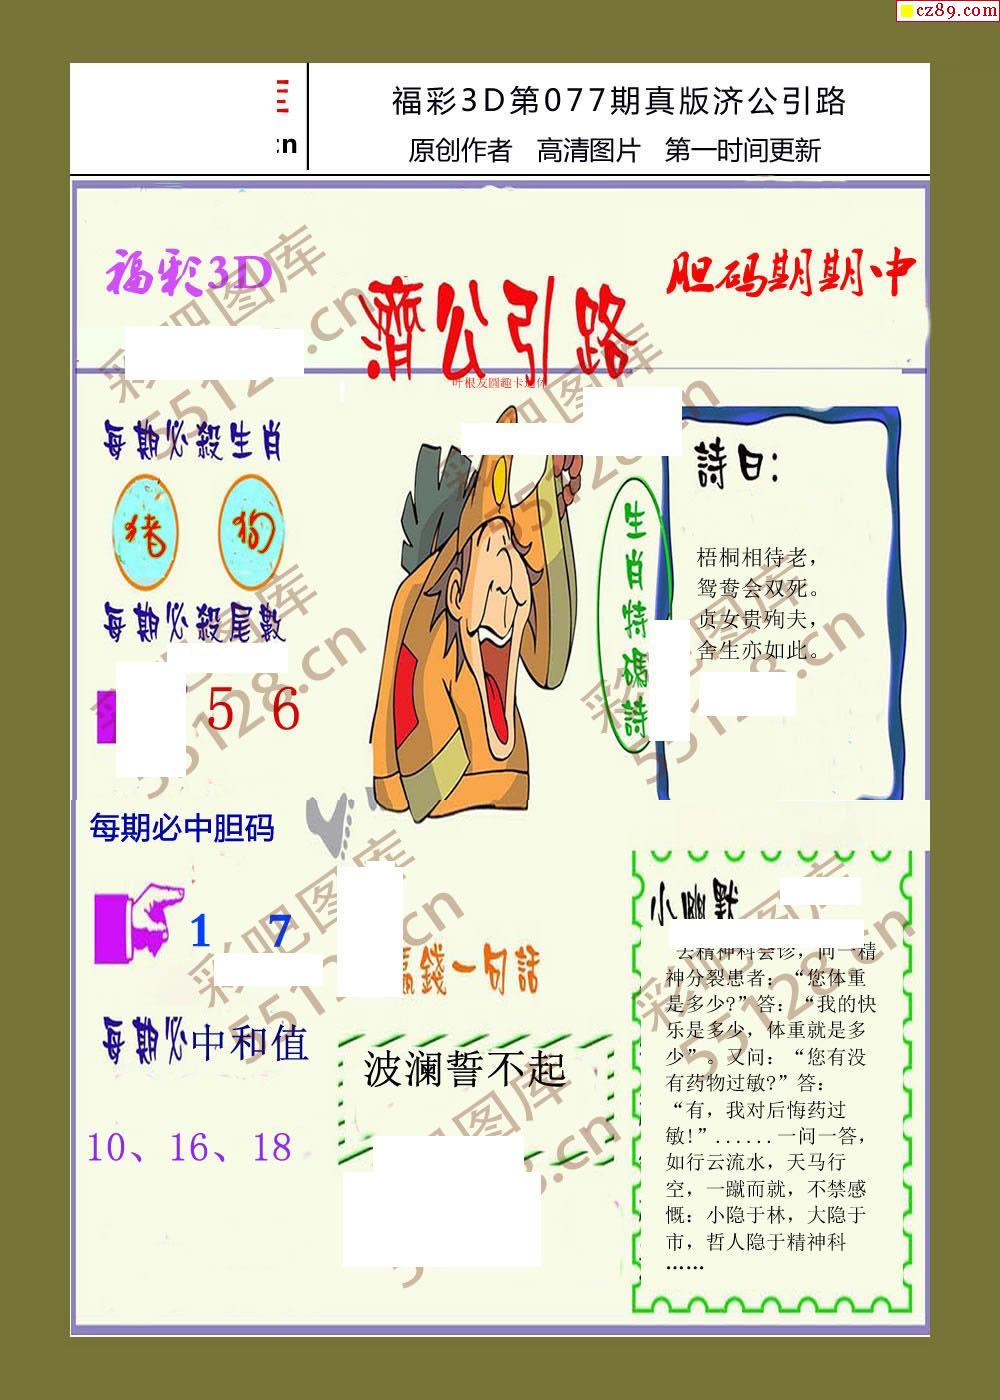 cz89.com
福彩3D第077期真版济公引路
:n
原创作者 高清图片 第一时间更新
福彩3D
胆码期期中
濟公引路
叶根友圆趣卡通体
每期必殺生肖
猪 狗
每期必殺尾數
5 6
生肖特碼詩
詩曰:
梧桐相待老，
鸳鸯会双死。
贞女贵殉夫，
舍生亦如此。
每期必中胆码
1 7
每期必中和值
10、16、18
贏錢一句話
波澜誓不起
小幽默
去精神科会诊，问一精
神分裂患者：“您体重
是多少?”答：“我的快
乐是多少，体重就是多
少”。又问：“您有没
有药物过敏?”答：
“有，我对后悔药过
敏!”......一问一答，
如行云流水，天马行
空，一蹴而就，不禁感
慨：小隐于林，大隐于
市，哲人隐于精神科
……
彩吧图库
55128.cn
彩吧图库
55128.cn
彩吧图库
55128.cn
彩吧图库
55128.cn
彩吧图库
55128.cn
彩吧图库
55128.cn
图库
3.cn